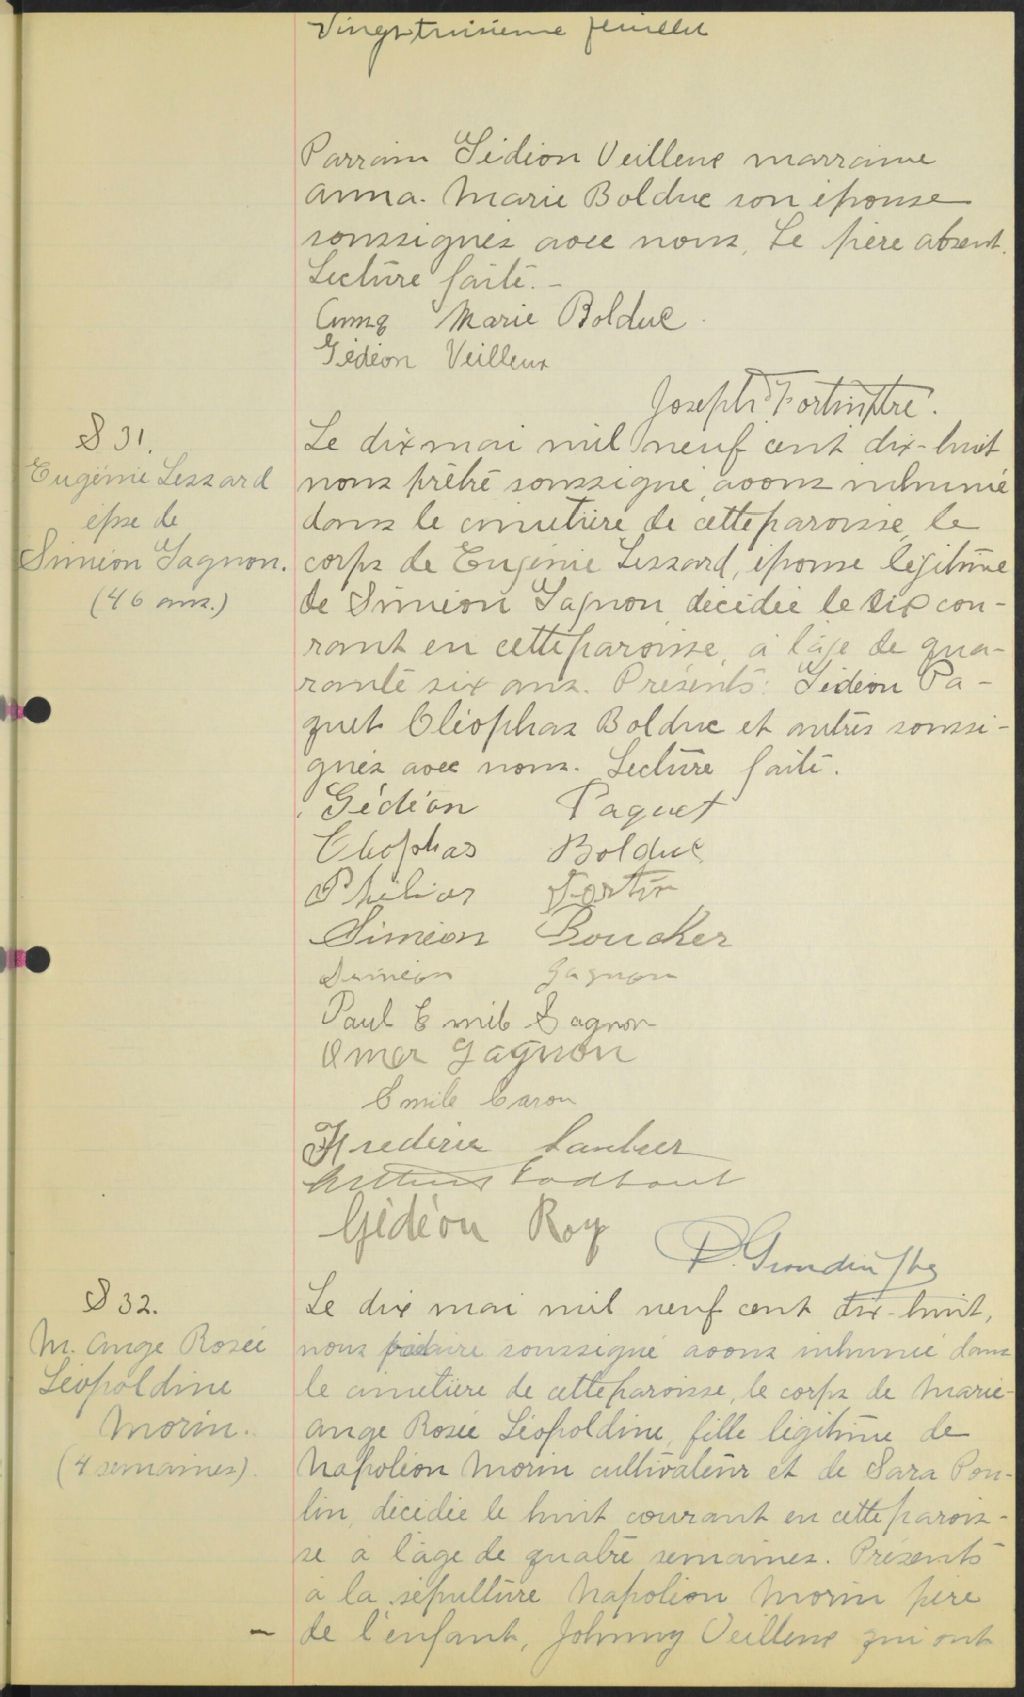 Vingt troisième feuillet
Parrain Gédéon Veilleux marraine
Anna-Marie Bolduc son épouse
soussignés avec nous. Le père absent.
Lecture faite.-
Anna Marie Bolduc.
Gédéon Veilleux
Joseph Fortin ptre.
S 31.
Eugénie Lessard
épse de
Siméon Gagnon.
(46 ans.)
Le dix mai mil neuf cent dix-huit
nous prêtre soussigné, avons inhumé
dans le cimetière de cette paroisse, le
corps de Eugénie Lessard, épouse légitime
de Siméon Gagnon, décédée le six cou-
rant en cette paroisse, à l'âge de qua-
rante six ans. Présents: Gédéon Pa-
quet Cléophas Bolduc et autres soussi-
gnés avec nous. Lecture faite.
Gédéon Paquet
Cléophas Bolduc
Fortin
Siméon Boucher
Siméon Gagnon
Paul Emile Gagnon
Omer Gagnon
Emile Caron
Frederic
Arthur Rodhout
Gédéon Roy
P. Grondin ptre
S 32.
M. Ange Rosée
Léopoldine
Morin.
(4 semaines).
Le dix mai mil neuf cent dix-huit,
nous vicaire soussigné avons inhumé dans
le cimetière de cette paroisse, le corps de Marie-
Ange Rosée Léopoldine, fille légitime de
Napoléon Morin cultivateur et de Sara Pou-
lin, décédée le huit courant en cette parois-
se à l'âge de quatre semaines. Présents
à la sépulture Napoléon Morin père
de l'enfant, Johnny Veilleux qui ont